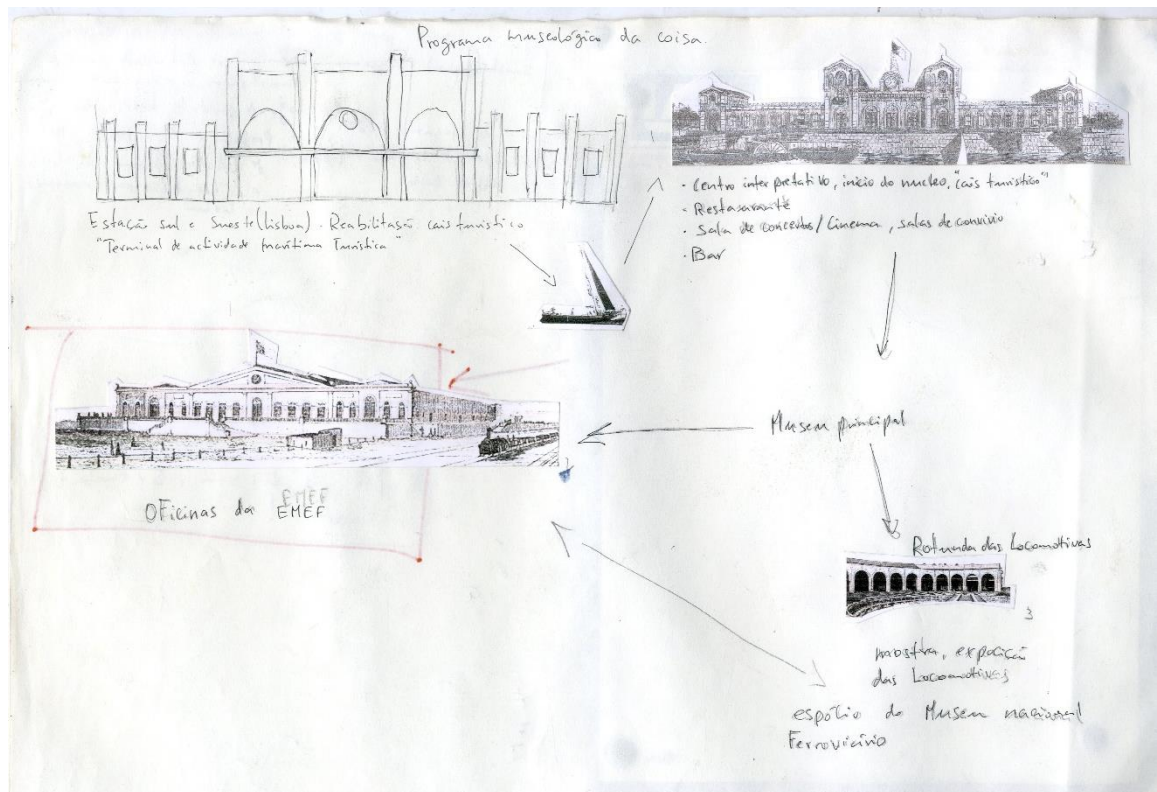 Programa museológico da coisa.
Estação sul e Sueste (Lisboa). Reabilitação cais turistico
"Terminal de actividade marítima Turística"
· Centro interpretativo, início do nucleo, "cais turistico"
· Restaurante
· Sala de concertos / Cinema, salas de convivio
· Bar
Museu principal
Oficinas da EMEF
EMEF
Rotunda das Locomotivas
3
mostra, exposição
das Locomotivas
espólio do Museu nacional
Ferroviário